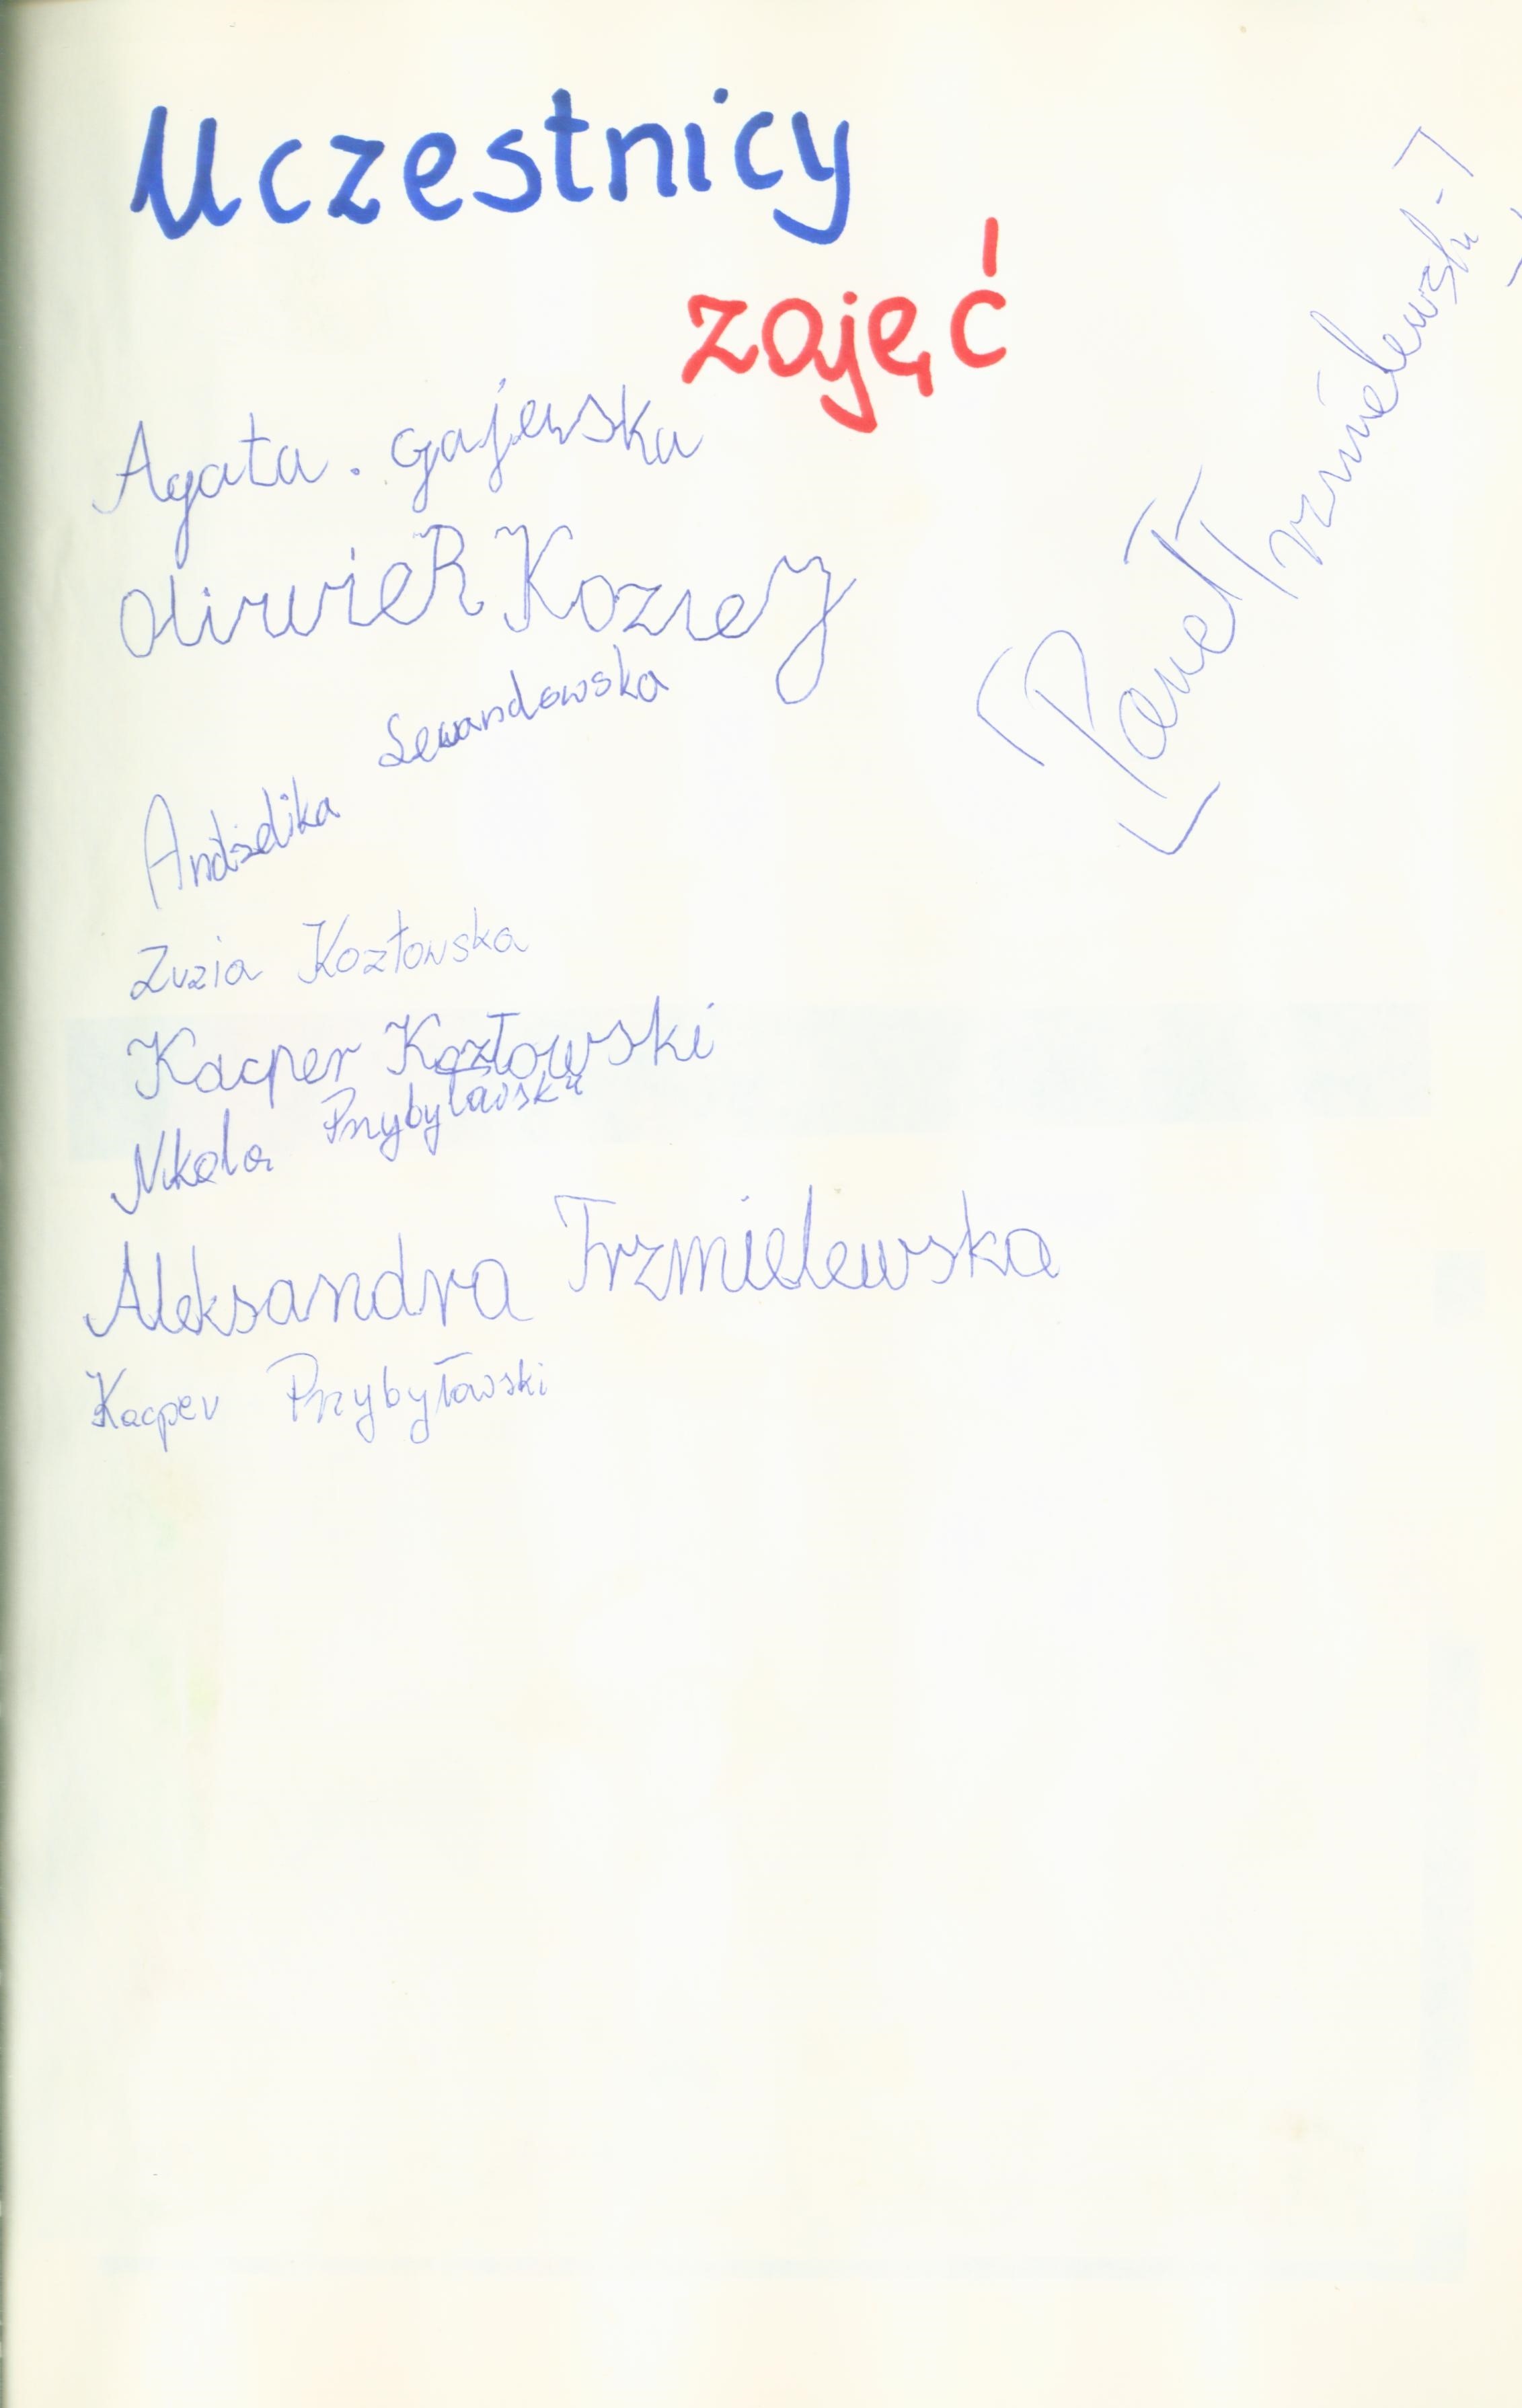 Uczestnicy
zajęć
Agata . Gajewska
OliwieR Koziey
Lewandowska
Andżelika
Zuzia Kozłowska
Kacper Kozłowski
Nikola Przybyłowska
Aleksandra Trzmielewska
Kacper Przybyłowski
Paweł Trzmielewski